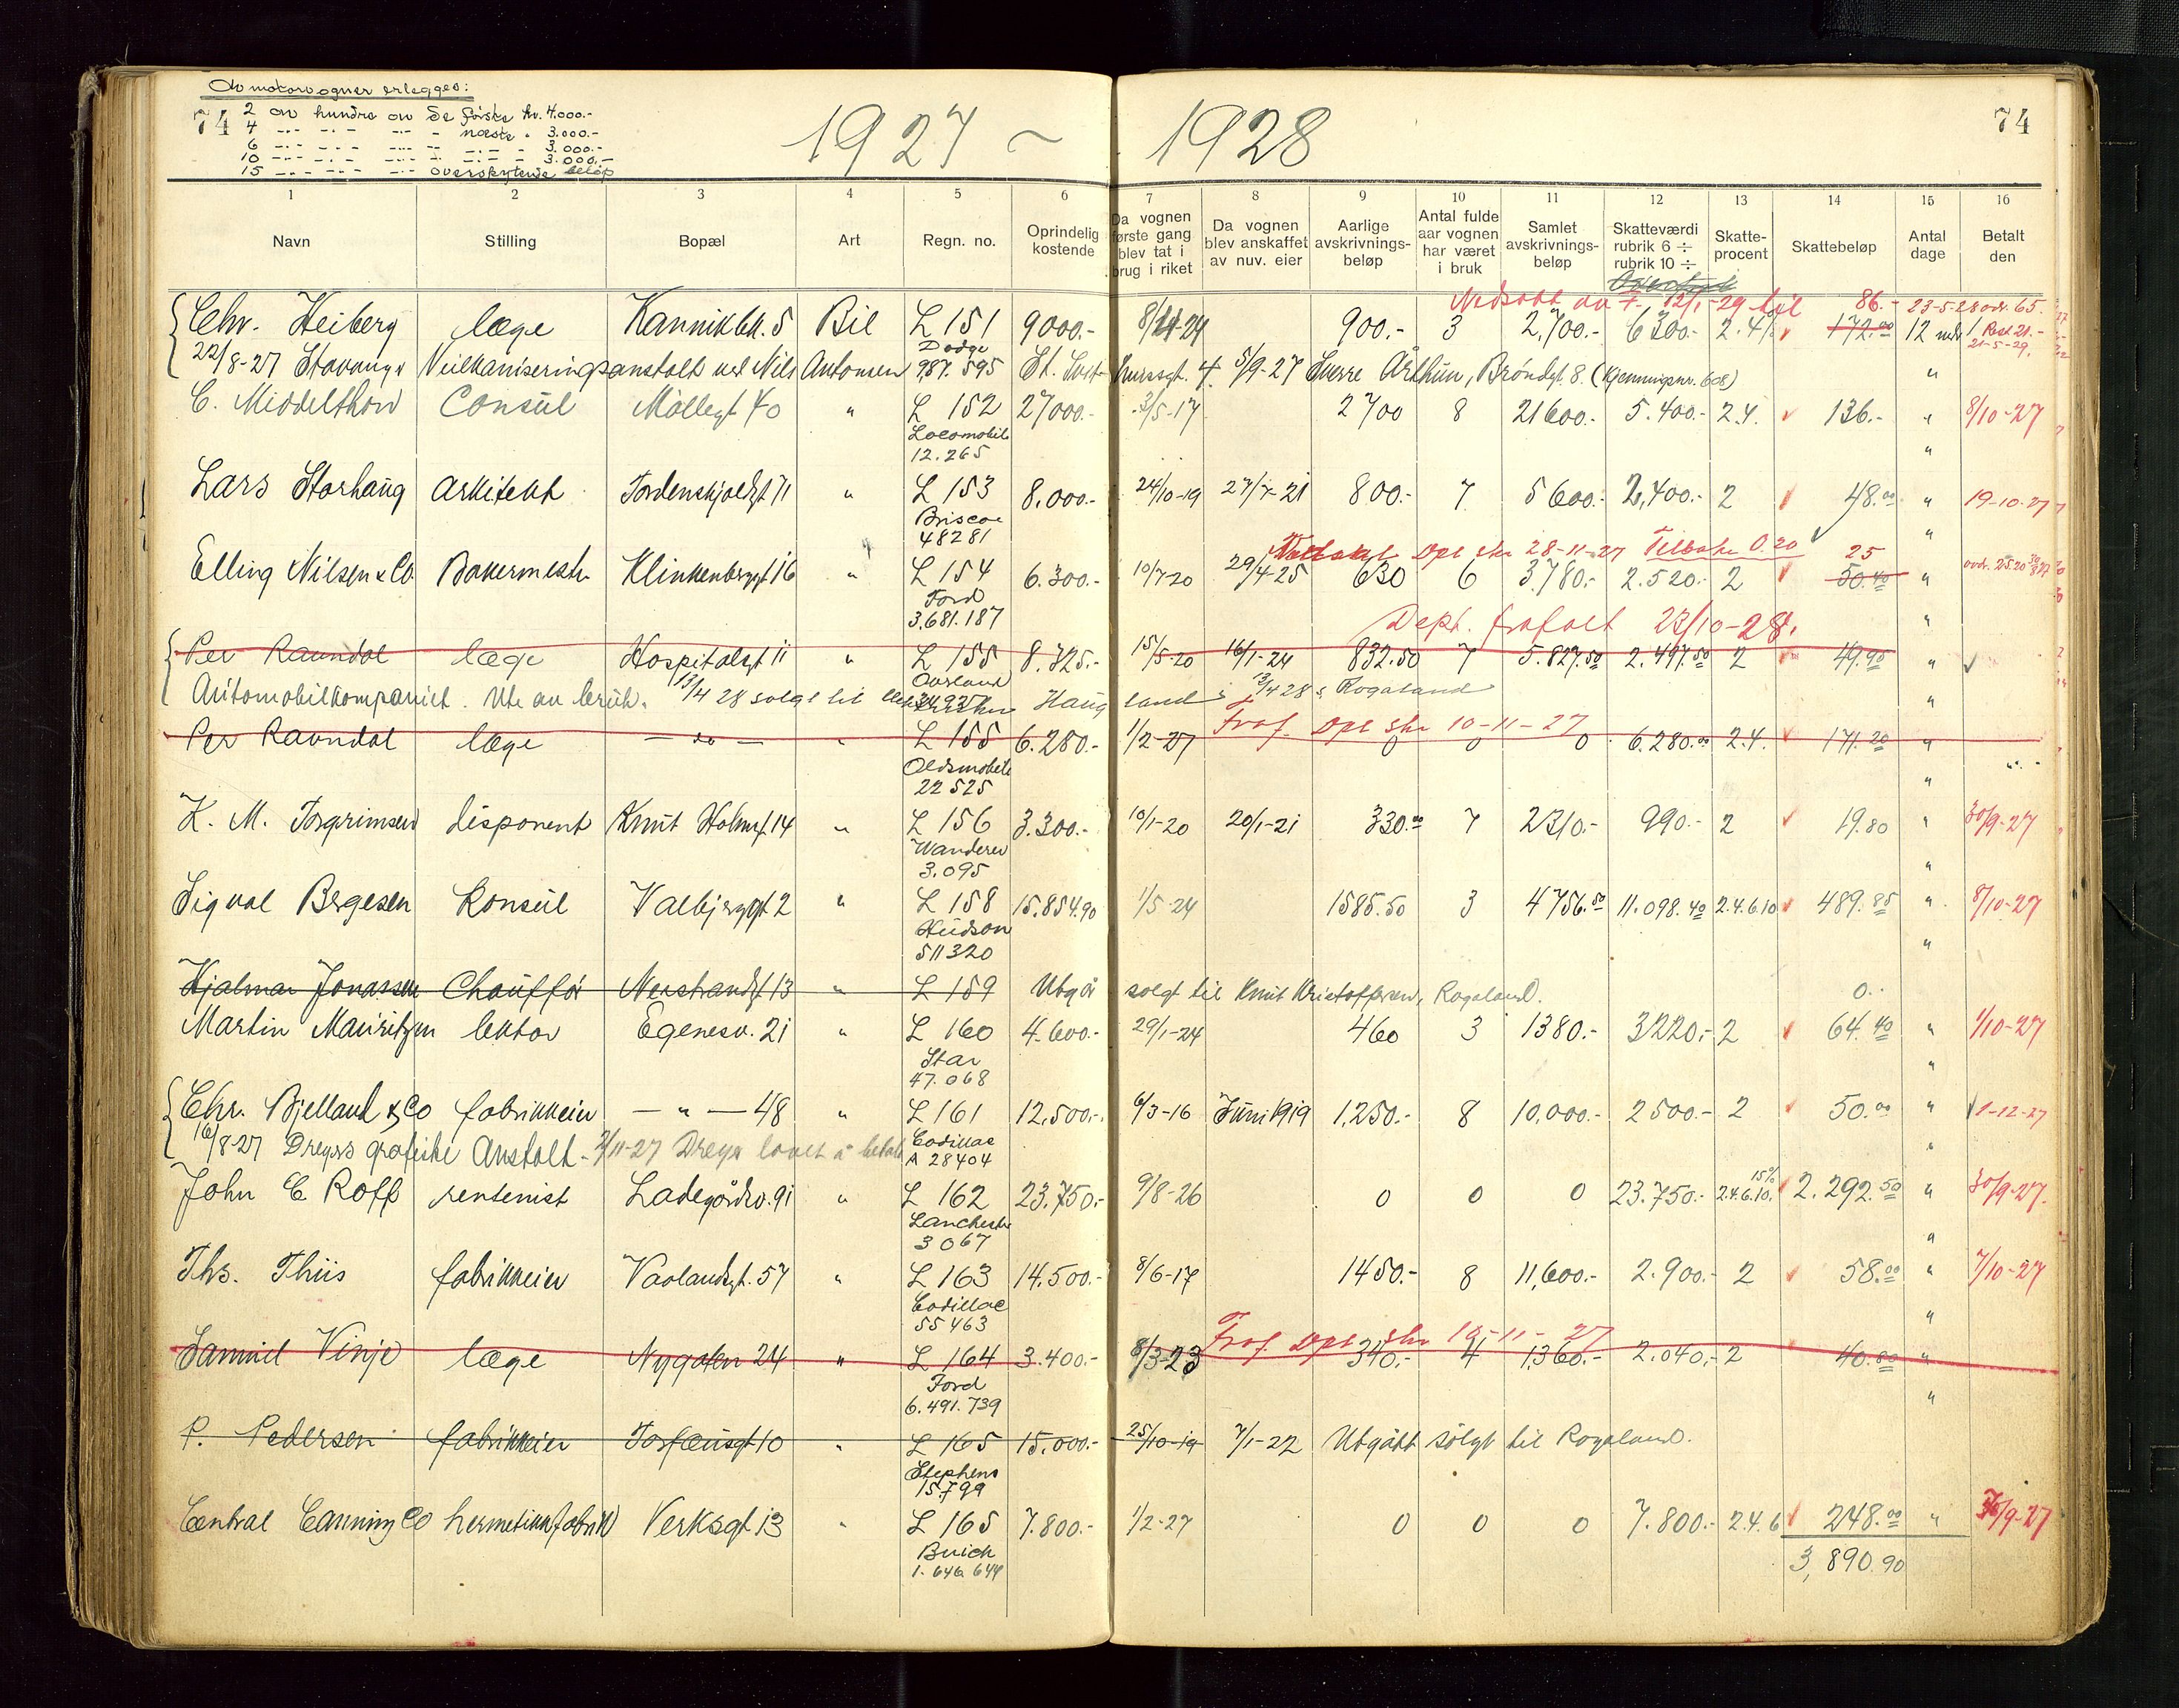 Av motorvogner erlegges:
2 av hundre av de første kr. 4.000.-
4 -"- -"- -"- " næste " 3.000.-
6 -"- -"- -"- " -"- " 3.000.-
10 -"- -"- -"- " -"- " 3.000.-
15 -"- -"- -"- overskytende beløp
74 1927 ~ 1928 74
1 2 3 4 5 6 7 8 9 10 11 12 13 14 15 16
Navn Stilling Bopæl Art Regn. no. Oprindelig kostende Da vognen første gang blev tat i brug i riket Da vognen blev anskaffet av nuv. eier Aarlige avskrivnings-beløp Antal fulde aar vognen har været i bruk Samlet avskrivnings-beløp Skatteværdi rubrik 6 ÷ rubrik 10 ÷ Skatte-procent Skattebeløp Antal dage Betalt den
Nedsatt av 12/1-29 til 86.- 23-5-28 avdr. 65.
Chr. Heiberg læge Kannikbk. 5 Bil L 151 9000.- 8/4-24 900.- 3 2,700.- 6300.- 2.4% 172.00 12 mdr Rest 21.-
Dodge 21-5-29,
22/8-27 Stavanger Vulkaniseringsanstalt ved Nils Antonsen 987.595 St. 5/9-27 Sverre Årthun, Brøndgt. 8. (Kjenningsnr. 608) "
C. Middelthon Consul Møllegt 40 " L 152 27000.- 3/5-17 2700 8 21600.- 5.400.- 2.4. 136.- " 8/10-27
Locomobile
12.265 "
Lars Storhaug Arkitekt Tordenskjoldgt 71 " L 153 8.000.- 24/10-19 27/7-21 800.- 7 5600.- 2,400.- 2 48.00 " 19-10-27
Briscoe
48281 "
Dpt skr 28-11-27 Tilbake 0.20 25
Elling Nilsen & Co. Bakermestr. Klinkenberggt 16 " L 154 6.300.- 10/7-20 29/4-25 630 6 3.780.- 2.520.- 2 50.40 " avdr. 25.20
Ford
3.681.187 Dept. frafalt 23/10-28. "
Per Ravndal læge Hospitalsgt 11 " L 155 8.325.- 15/5-20 16/1-24 832.50 7 5.827.50 2.497.50 2 49.95 "
Overland
Automobilkompaniet. Ute av bruk. 13/4 28 solgt til Haugland i Rogaland "
Fraf. Dpt skr 10-11-27
Per Ravndal læge - do - " L 155 6.280.- 1/2-27 0 0 0 6.280.00 2.4. 171.20 "
Oldsmobile
22525 "
K. M. Torgrimsen disponent Knut Holmsgt. 14 " L 156 3.300.- 10/1-20 20/1-21 330.00 7 2310.- 990.- 2 19.80 " 30/9-27
Wanderer
3.095 "
Sigval Bergesen Konsul Valbjerggt 2 " L 158 15.854.90 1/5-24 1585.50 3 4756.50 11.098.40 2.4.6.10 489.85 " 8/10-27
Hudson
511320 "
Hjalmar Jonassen Chauffør Nerstrandgt. 13 " L 159 Utgår solgt til Knut Kristoffersen, Rogaland. 0.-
Martin Mauritzen lektor Egenesv. 21 " L 160 4.600.- 29/1-24 460 3 1380.- 3220.- 2 64.40 " 1/10-27
Star
47.068 "
Chr. Bjelland & Co fabrikkeier - " - 48 " L 161 12.500.- 6/3-16 Juni 1919 1.250.- 8 10.000.- 2500.- 2 50.00 " 1-12-27
Cadillac
16/8-27 Dreyers grafiske Anstalt - 2/11-27 Dreyer lovet å betale A 28404 "
15%
John C Roff rentenist Ladegårdsv. 91 " L 162 23.750.- 9/8-26 0 0 0 23.750.- 2.4.6.10. 2.292.50 " 30/9-27.
Lanchester
3067 "
Ths. Thiis fabrikkeier Vaalandsgt. 57 " L 163 14.500.- 8/6-17 1450.- 8 11,600.- 2.900.- 2 58.00 " 7/10-27
Cadillac
55463 "
Fraf. Dpt skr 10-11-27
Samuel Vinje læge Nygaten 24 " L 164 3.400.- 8/3-23 340.- 4 1,360.- 2.040.- 2 40.80 "
Ford
6.491.739 "
P. Pedersen fabrikkeier Torfæusgt 10 " L 165 15.000.- 25/10-19 7/1-22 Utgått solgt til Rogaland.
Stephens
15.799
Central Canning Co hermetikkfabrik Verksgt 13 " L 165 7.800.- 1/2-27 0 0 0 7.800.- 2.4.6 248.00 " 30/9-27
Buick
1.646.644 3,890.90